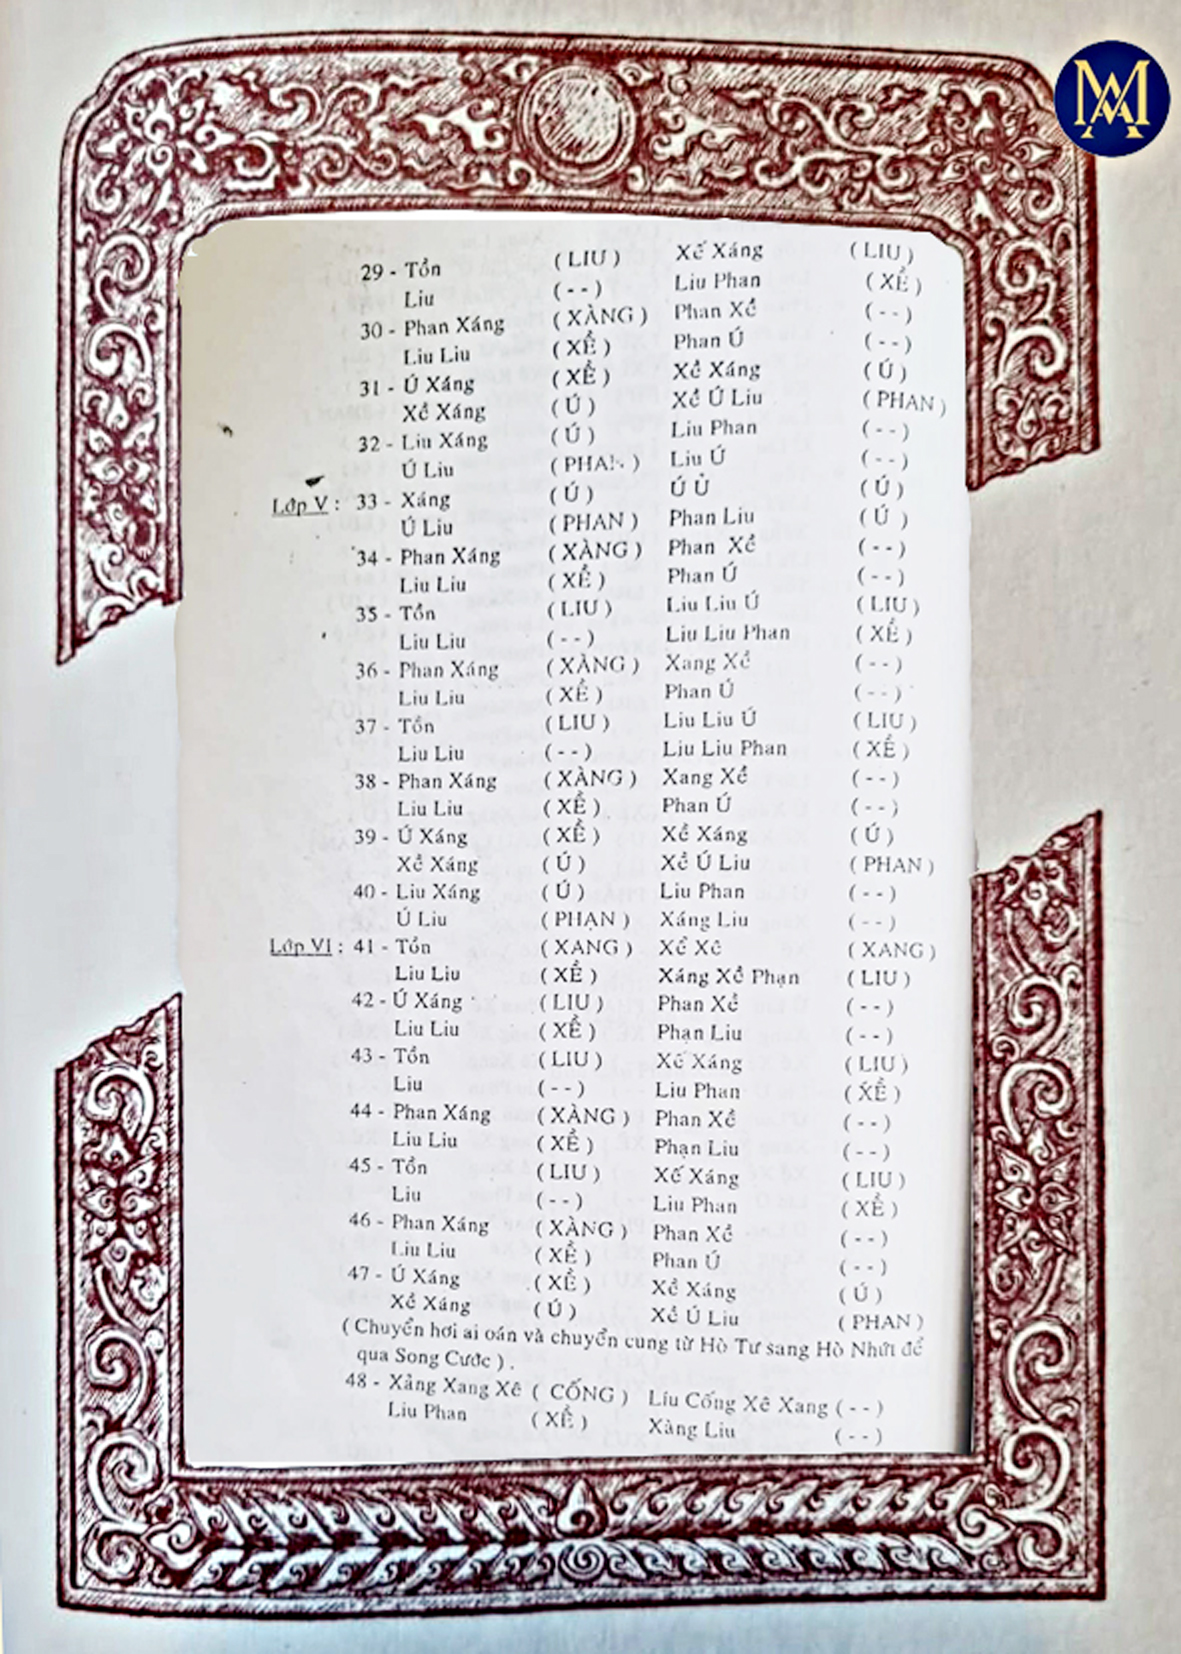 29 - Tồn ( LIU ) Xế Xáng ( LIU )
Liu ( - - ) Liu Phan ( XỀ )
30 - Phan Xáng ( XÀNG ) Phan Xề ( - - )
Liu Liu ( XỀ ) Phan Ú ( - - )
31 - Ú Xáng ( XỀ ) Xề Xáng ( Ú )
Xề Xáng ( Ú ) Xề Ú Liu ( PHAN )
32 - Liu Xáng ( Ú ) Liu Phan ( - - )
Ú Liu ( PHAN ) Liu Ú ( - - )
Lớp V : 33 - Xáng ( Ú ) Ú Ủ ( Ú )
Ú Liu ( PHAN ) Phan Liu ( Ú )
34 - Phan Xáng ( XÀNG ) Phan Xề ( - - )
Liu Liu ( XỀ ) Phan Ú ( - - )
35 - Tồn ( LIU ) Liu Liu Ú ( LIU )
Liu Liu ( - - ) Liu Liu Phan ( XỀ )
36 - Phan Xáng ( XÀNG ) Xang Xề ( - - )
Liu Liu ( XỀ ) Phan Ú ( - - )
37 - Tồn ( LIU ) Liu Liu Ú ( LIU )
Liu Liu ( - - ) Liu Liu Phan ( XỀ )
38 - Phan Xáng ( XÀNG ) Xang Xề ( - - )
Liu Liu ( XỀ ) Phan Ú ( - - )
39 - Ú Xáng ( XỀ ) Xề Xáng ( Ú )
Xề Xáng ( Ú ) Xề Ú Liu ( PHAN )
40 - Liu Xáng ( Ú ) Liu Phan ( - - )
Ú Liu ( PHẠN ) Xáng Liu ( - - )
Lớp VI : 41 - Tồn ( XANG ) Xể Xê ( XANG )
Liu Liu ( XỀ ) Xáng Xề Phạn ( LIU )
42 - Ú Xáng ( LIU ) Phan Xề ( - - )
Liu Liu ( XỀ ) Phạn Liu ( - - )
43 - Tồn ( LIU ) Xế Xáng ( LIU )
Liu ( - - ) Liu Phan ( XỀ )
44 - Phan Xáng ( XÀNG ) Phan Xề ( - - )
Liu Liu ( XỀ ) Phạn Liu ( - - )
45 - Tồn ( LIU ) Xế Xáng ( LIU )
Liu ( - - ) Liu Phan ( XỀ )
46 - Phan Xáng ( XÀNG ) Phan Xề ( - - )
Liu Liu ( XỀ ) Phan Ú ( - - )
47 - Ú Xáng ( XỀ ) Xề Xáng ( Ú )
Xề Xáng ( Ú ) Xề Ú Liu ( PHAN )
( Chuyển hơi ai oán và chuyển cung từ Hò Tư sang Hò Nhứt để
qua Song Cước ) .
48 - Xảng Xang Xê ( CỐNG ) Líu Cống Xê Xang ( - - )
Liu Phan ( XỀ ) Xàng Liu ( - - )